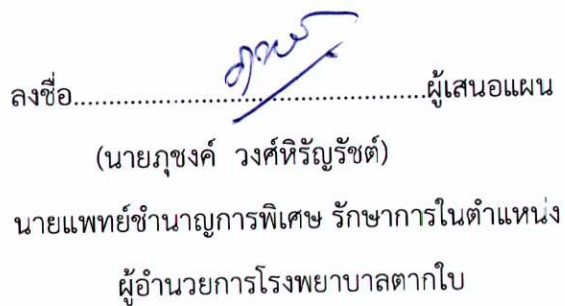 ลงชื่อ..........................................ผู้เสนอแผน
(นายภุชงค์ วงศ์หิรัญรัชต์)
นายแพทย์ชำนาญการพิเศษ รักษาการในตำแหน่ง
ผู้อำนวยการโรงพยาบาลตากใบ